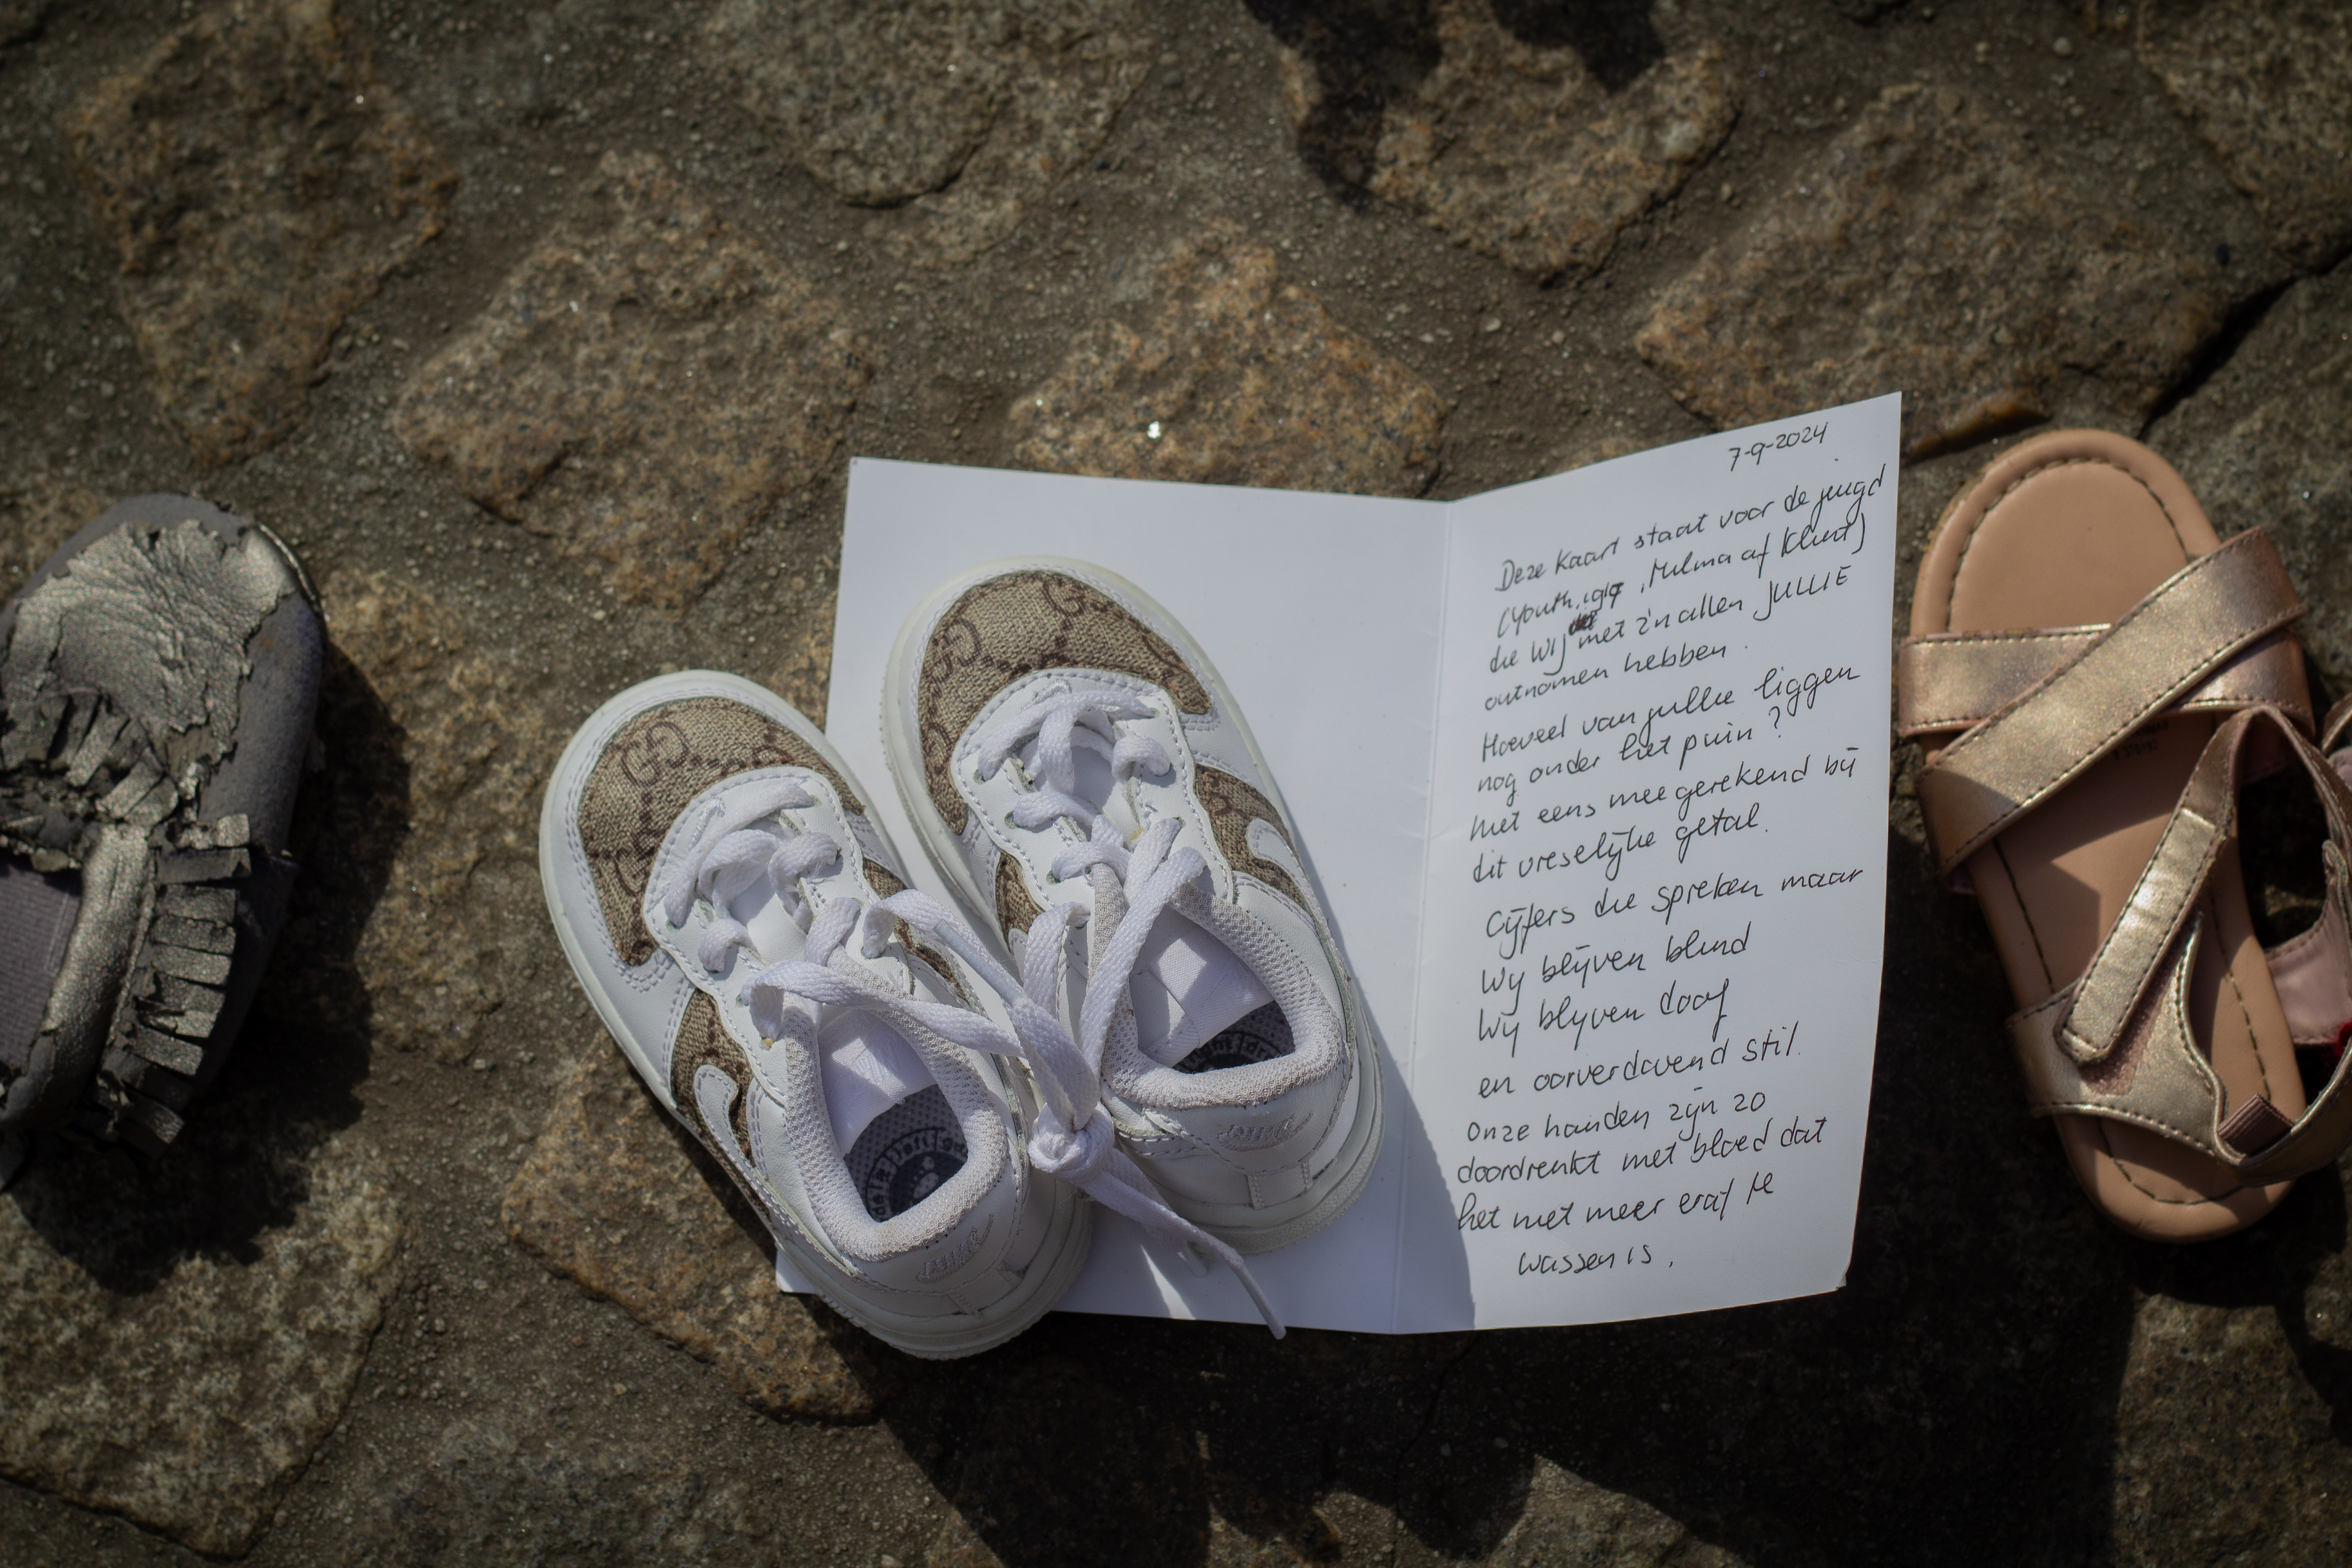 7-9-2024
Deze kaart staat voor de jeugd
(Youth, 1907, Hilma af Klint)
die wij met z'n allen JULLIE
ontnomen hebben.
Hoeveel van jullie liggen
nog onder het puin?
Niet eens meegerekend bij
dit vreselijke getal.
Cijfers die spreken maar
Wij blijven blind
Wij blijven doof
en oorverdovend stil.
Onze handen zijn zo
doordrenkt met bloed dat
het niet meer eraf te
wassen is.